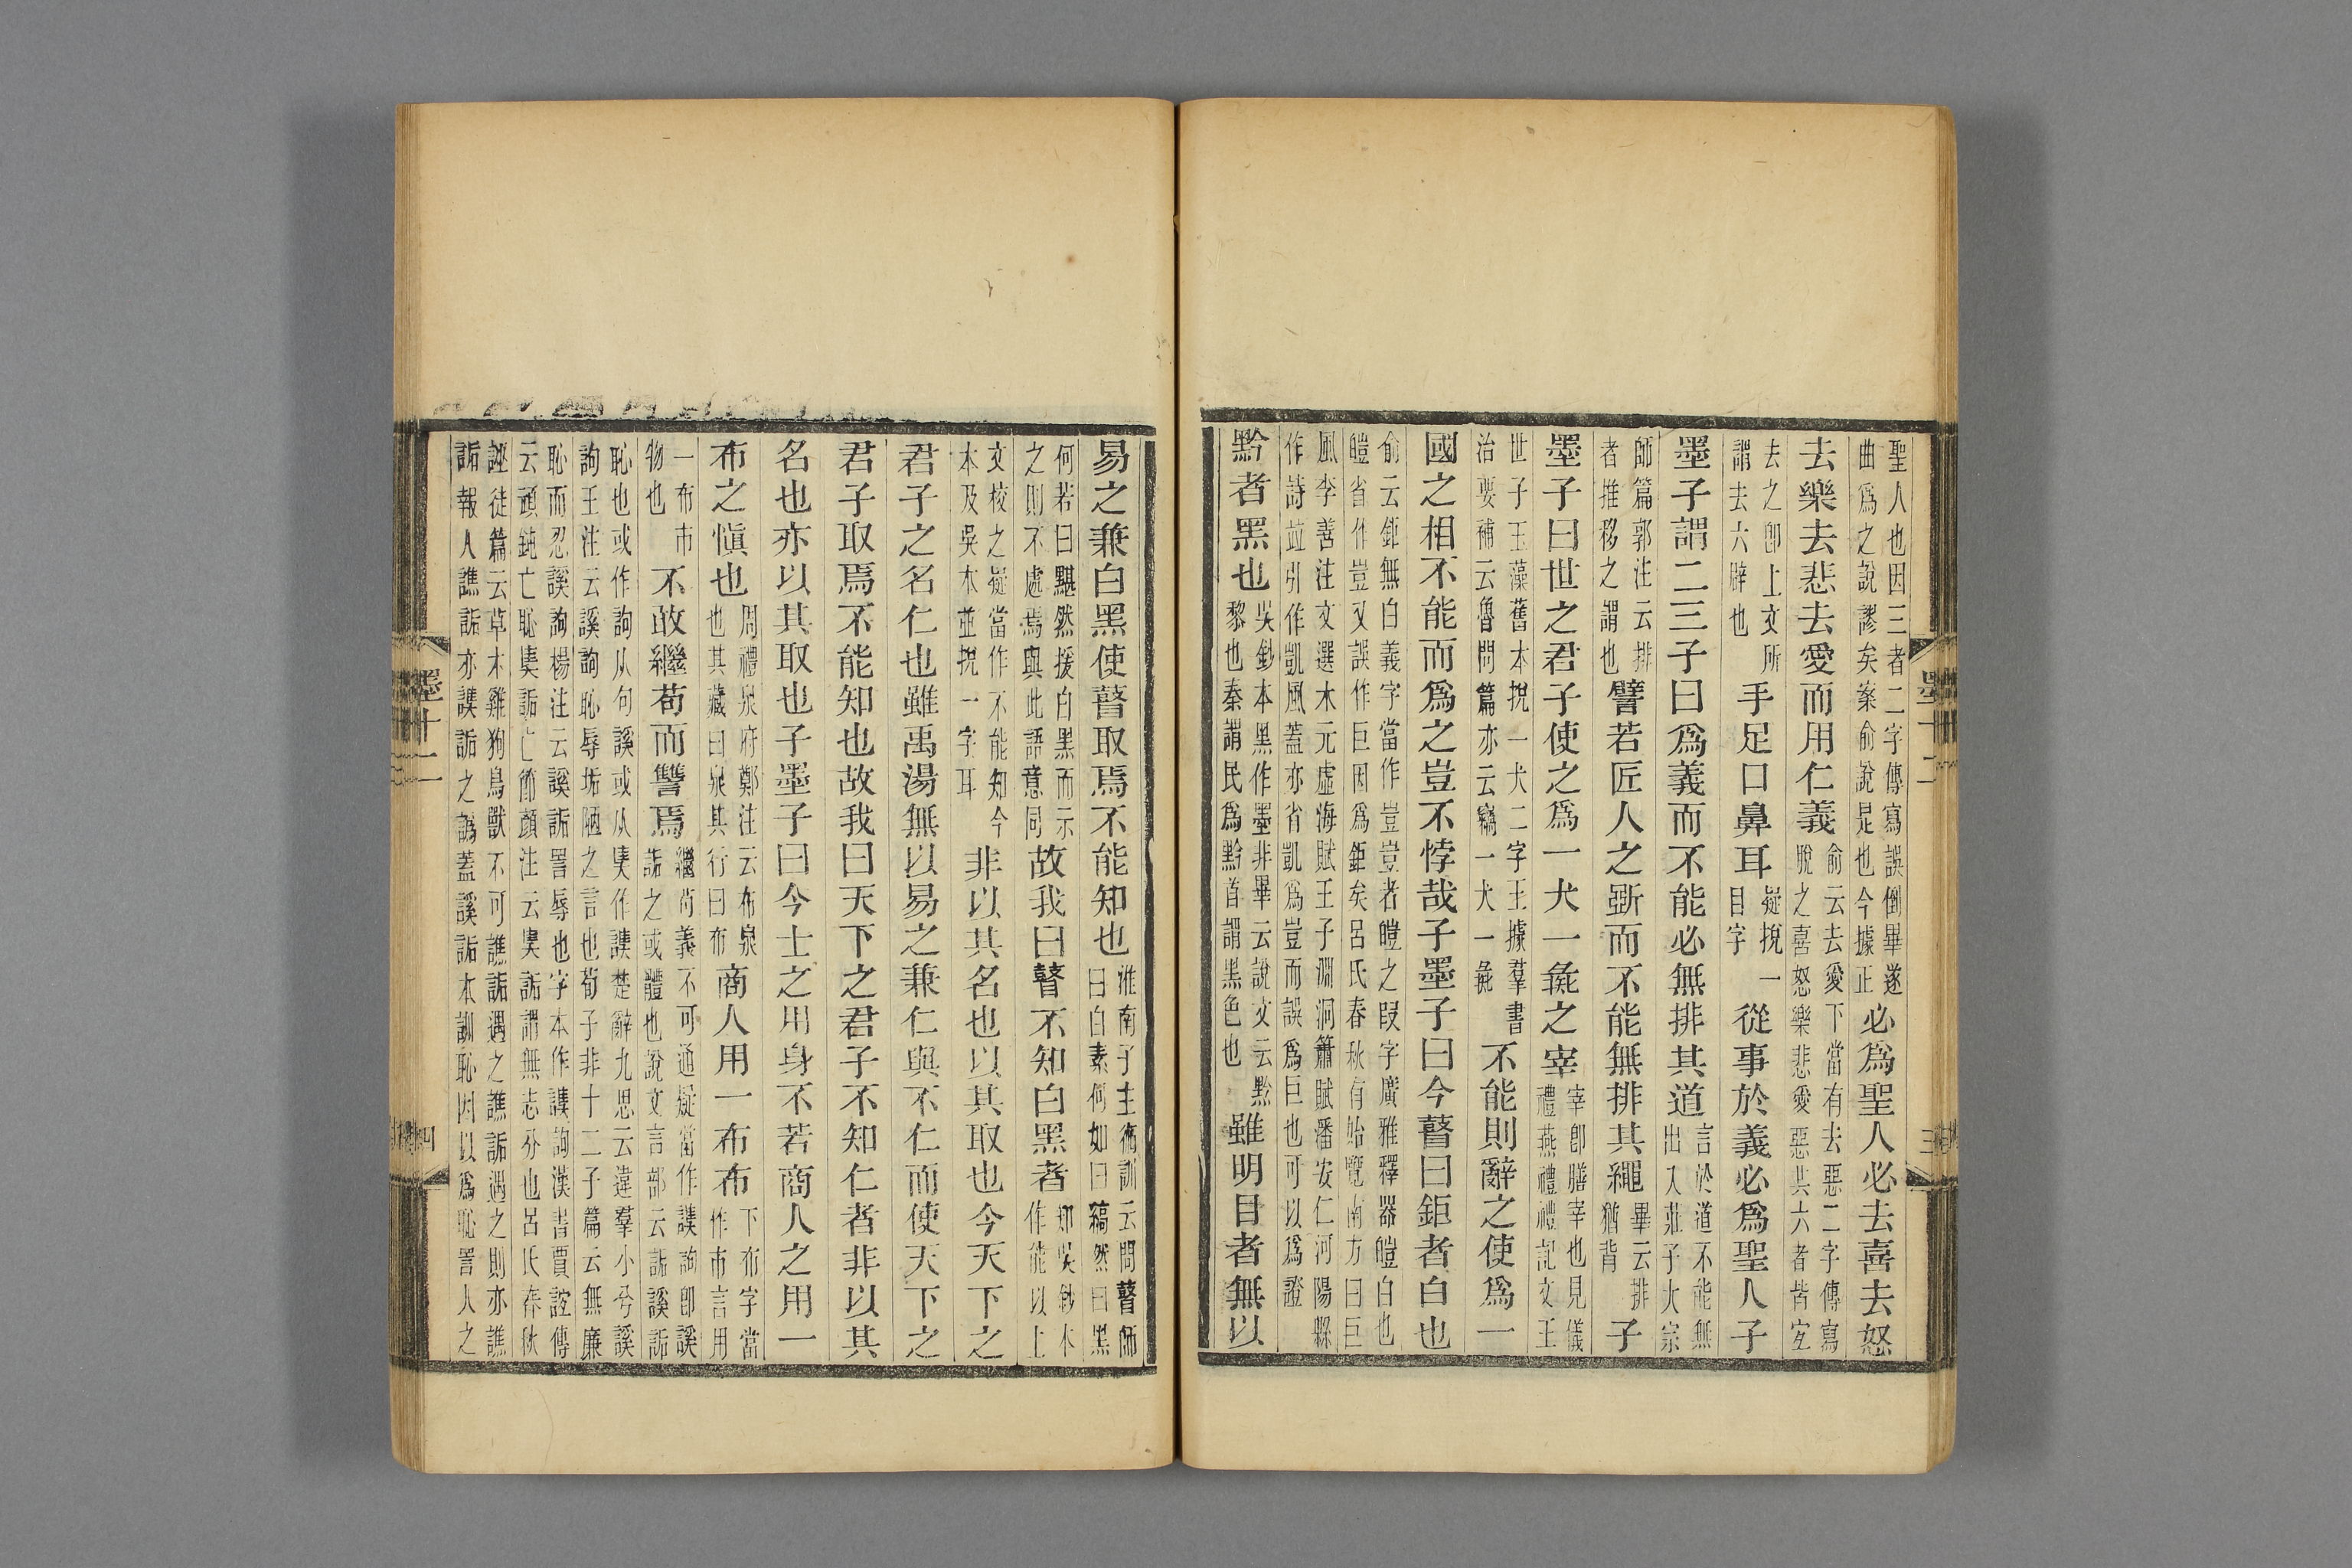 聖人也因三者二字傳寫誤倒畢遂
曲爲之說謬矣案俞說是也今據正
必爲聖人必去喜去怒
去樂去悲去愛而用仁義
俞云去愛下當有去惡二字傳寫
脫之喜怒樂悲愛惡共六者皆宜
去之卽上文所
謂去六辟也
手足口鼻耳
疑挩一
目字
從事於義必爲聖人子
墨子謂二三子曰爲義而不能必無排其道
言於道不能無
出入莊子大宗
師篇郭注云排
者推移之謂也
譬若匠人之斲而不能無排其繩
畢云排
猶背
子
墨子曰世之君子使之爲一犬一彘之宰
宰卽膳宰也見儀
禮燕禮禮記文王
世子玉藻舊本挩一犬二字王據羣書
治要補云魯問篇亦云竊一犬一彘
不能則辭之使爲一
國之相不能而爲之豈不悖哉子墨子曰今瞽曰鉅者白也
俞云鉅無白義字當作豈豈者皚之叚字廣雅釋器皚白也
皚省作豈又誤作巨因爲鉅矣呂氏春秋有始覽南方曰巨
風李善注文選木元虛海賦王子淵洞簫賦潘安仁河陽縣
作詩竝引作凱風蓋亦省凱爲豈而誤爲巨也可以爲證
黔者黑也
吳鈔本黑作墨非畢云說文云黔
黎也秦謂民爲黔首謂黑色也
雖明目者無以
墨十二
三
易之兼白黑使瞽取焉不能知也
淮南子主術訓云問瞽師
曰白素何如曰縞然曰黑
何若曰黮然援白黑而示
之則不處焉與此語意同
故我曰瞽不知白黑者
知吳鈔本
作能以上
文校之疑當作不能知今
本及吳本並挩一字耳
非以其名也以其取也今天下之
君子之名仁也雖禹湯無以易之兼仁與不仁而使天下之
君子取焉不能知也故我曰天下之君子不知仁者非以其
名也亦以其取也子墨子曰今士之用身不若商人之用一
布之愼也
周禮泉府鄭注云布泉
也其藏曰泉其行曰布
商人用一布布
下布字當
作市言用
一布市
物也
不敢繼苟而讐焉
繼苟義不可通疑當作䜁詢卽謑
詬之或體也說文言部云謑詬
恥也或作詢从句謑或从奊作䜁楚辭九思云違羣小兮謑
詢王注云謑詢恥辱垢陋之言也荀子非十二子篇云無廉
恥而忍謑詢楊注云謑詬詈辱也字本作䜁詢漢書賈誼傳
云頑鈍亡恥奊詬亡節顏注云奊詬謂無志分也呂氏春秋
誣徒篇云草木雞狗鳥獸不可譙詬遇之譙詬遇之則亦譙
詬報人譙詬亦䜁詬之譌蓋謑詬本訓恥因以爲恥詈人之
墨十二
四